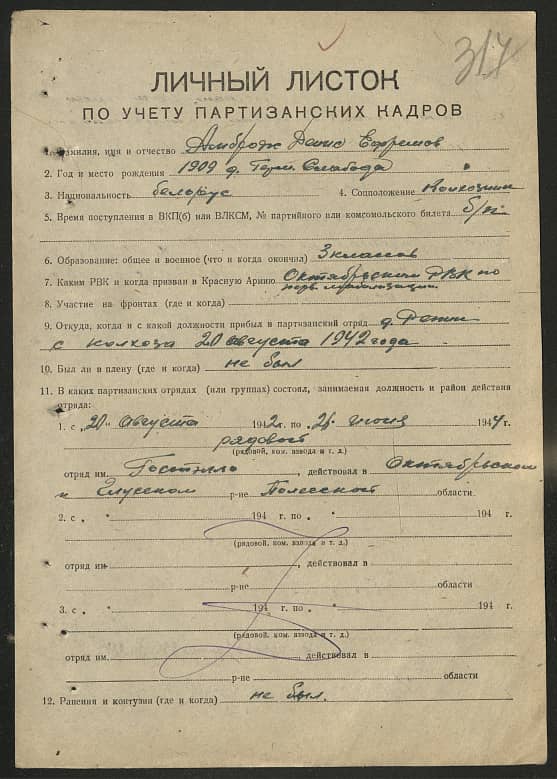 317
ЛИЧНЫЙ ЛИСТОК
ПО УЧЕТУ ПАРТИЗАНСКИХ КАДРОВ
1. Фамилия, имя и отчество Амбродж Денис Ефремов
2. Год и место рождения 1909 д. Слабода
3. Национальность белорус 4. Соцположение колхозник
5. Время поступления в ВКП(б) или ВЛКСМ, № партийного или комсомольского билета б/п
6. Образование: общее и военное (что и когда окончил) 3 классов
7. Каким РВК и когда призван в Красную Армию Октябрьским РВК по
мобилизации
8. Участие на фронтах (где и когда)
9. Откуда, когда и с какой должности прибыл в партизанский отряд д.
с колхоза 20 августа 1942 года
10. Был ли в плену (где и когда) не был
11. В каких партизанских отрядах (или группах) состоял, занимаемая должность и район действия
отряда:
1. с „20" августа 1942 г. по „26" июня 1944 г.
рядовой
(рядовой, ком. взвода и т. д.)
отряд им. Гостелло, действовал в Октябрьском
и Глусском р-не Полесской области.
2. с „ " 194 г. по „ " 194 г.
(рядовой, ком. взвода и т. д.)
отряд им. , действовал в
р-не области
3. с „ " 194 г. по „ " 194 г.
(рядовой, ком. взвода и т. д.)
отряд им. , действовал в
р-не области
12. Ранения и контузии (где и когда) не был.